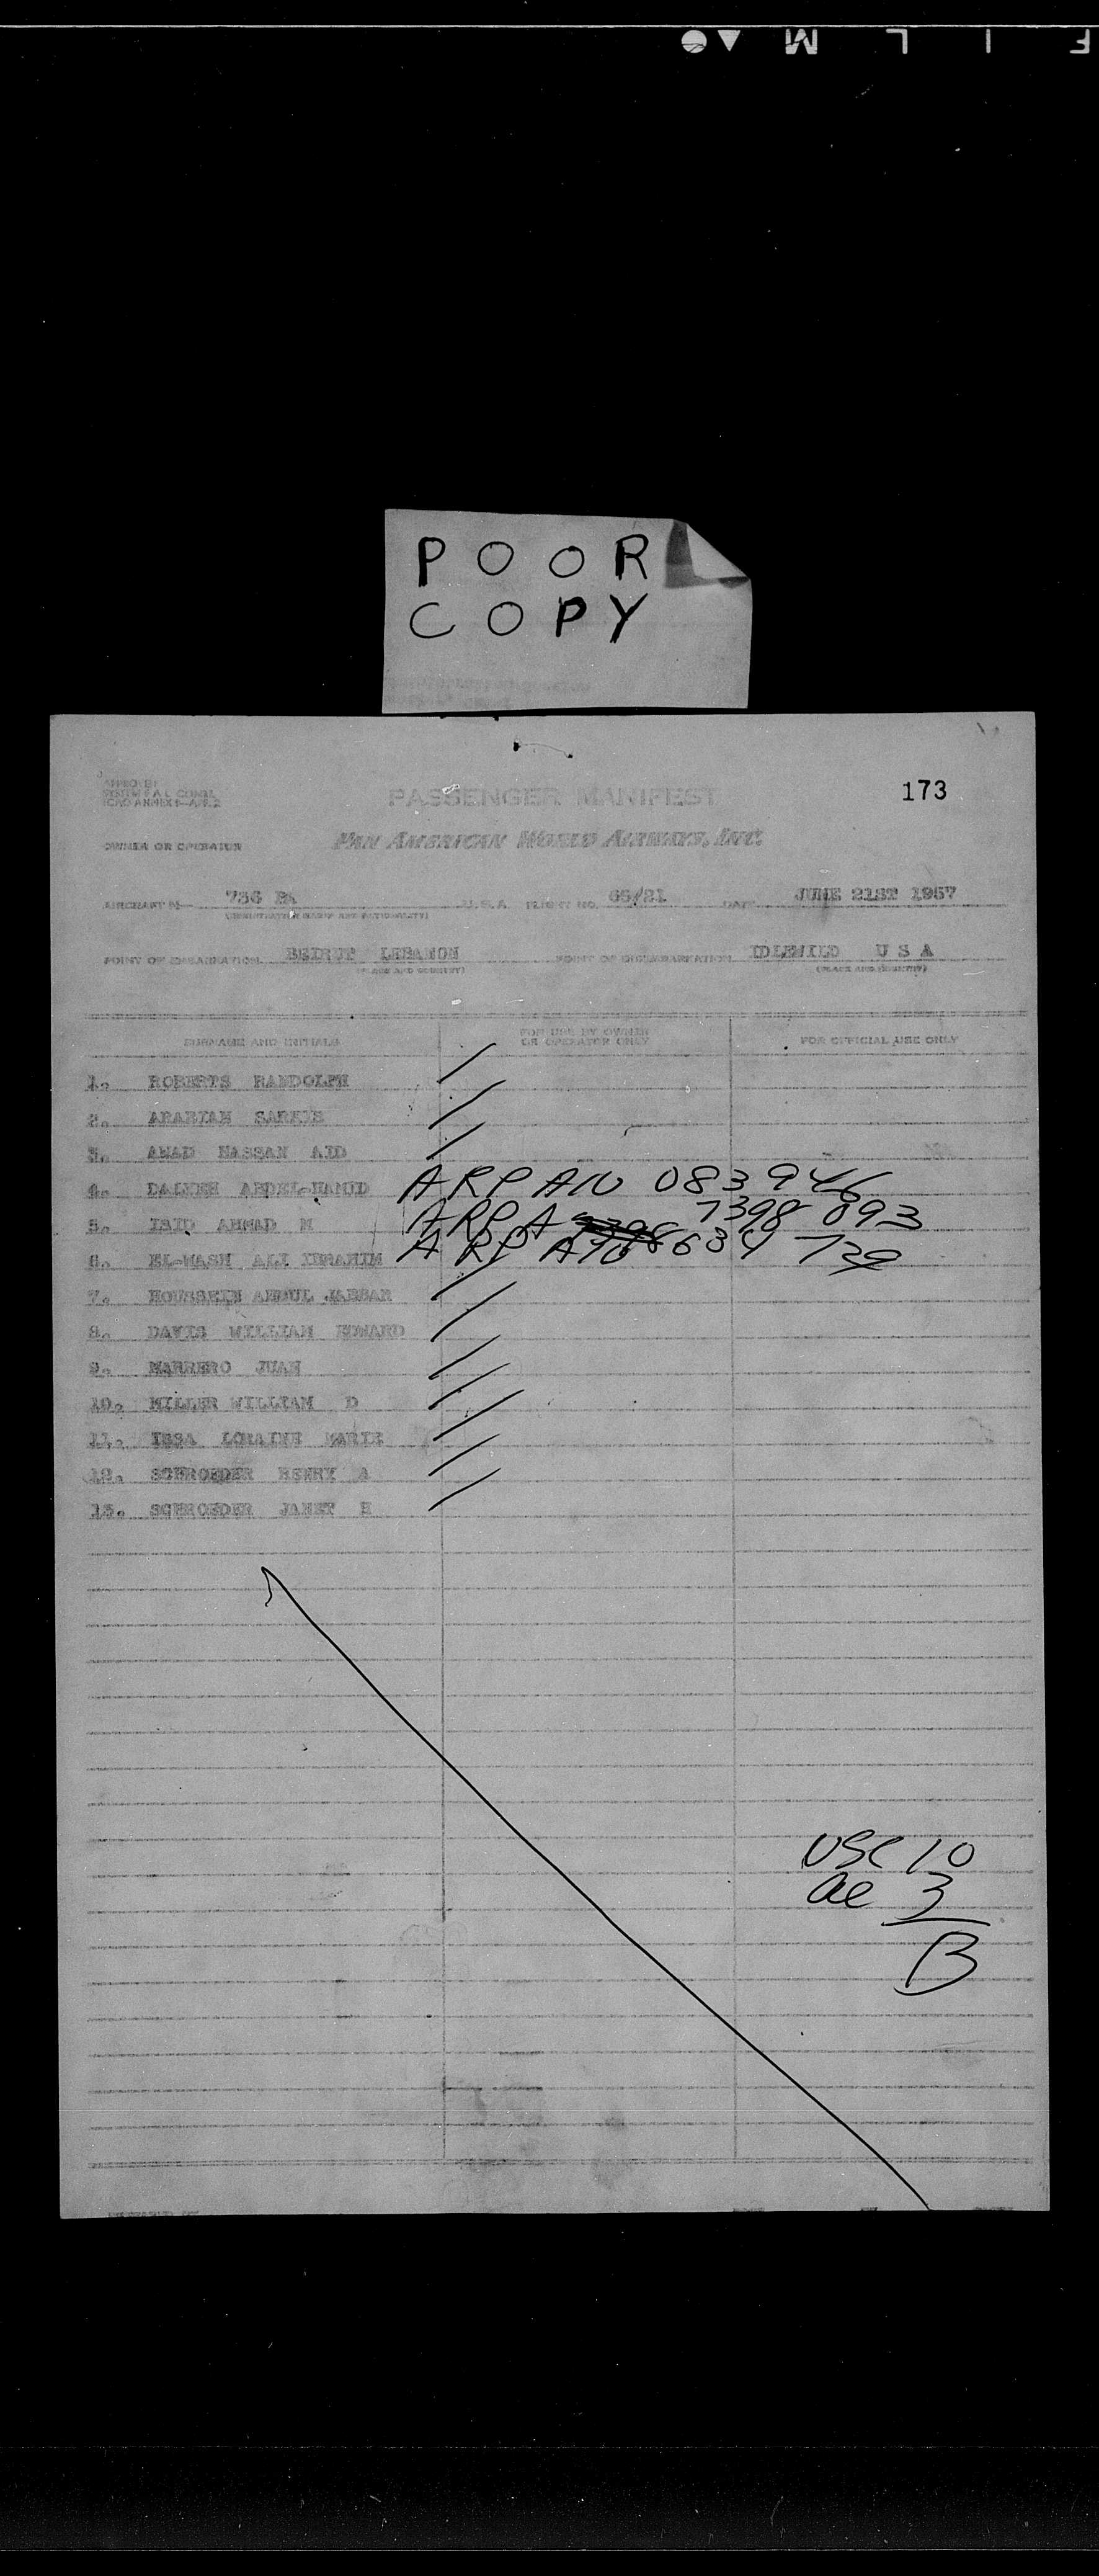 F I L M
POOR
COPY
APPROVED
ICAO ANNEX 9-APP. 2
PASSENGER MANIFEST
173
OWNER OR OPERATOR PAN AMERICAN WORLD AIRWAYS, INC.
AIRCRAFT N- 736 PA U.S.A. FLIGHT NO. 65/21 DATE JUNE 21ST 1957
(REGISTRATION MARKS AND NATIONALITY)
POINT OF EMBARKATION BEIRUT LEBANON POINT OF DISEMBARKATION IDLEWILD U S A
(PLACE AND COUNTRY) (PLACE AND COUNTRY)
SURNAME AND INITIALS FOR USE BY OWNER OR OPERATOR ONLY FOR OFFICIAL USE ONLY
1. ROBERTS RANDOLPH
2. ARABIAN SARKIS
3. AWAD HASSAN AID
4. ABDEL-HAMID ARP A10 083 946
5. EID AHMAD M ARP A 7398 893
6. EL-WASH ALI IBRAHIM ARP A10 634 729
7. HOUSSEIN ABDUL JABBAR
8. DAVIS WILLIAM EDWARD
9. MARRERO JUAN
10. MILLER WILLIAM D
11. ISSA LORAINE MARIE
12. SCHROEDER HENRY A
13. SCHROEDER JANET E
USC 10
al 3
13